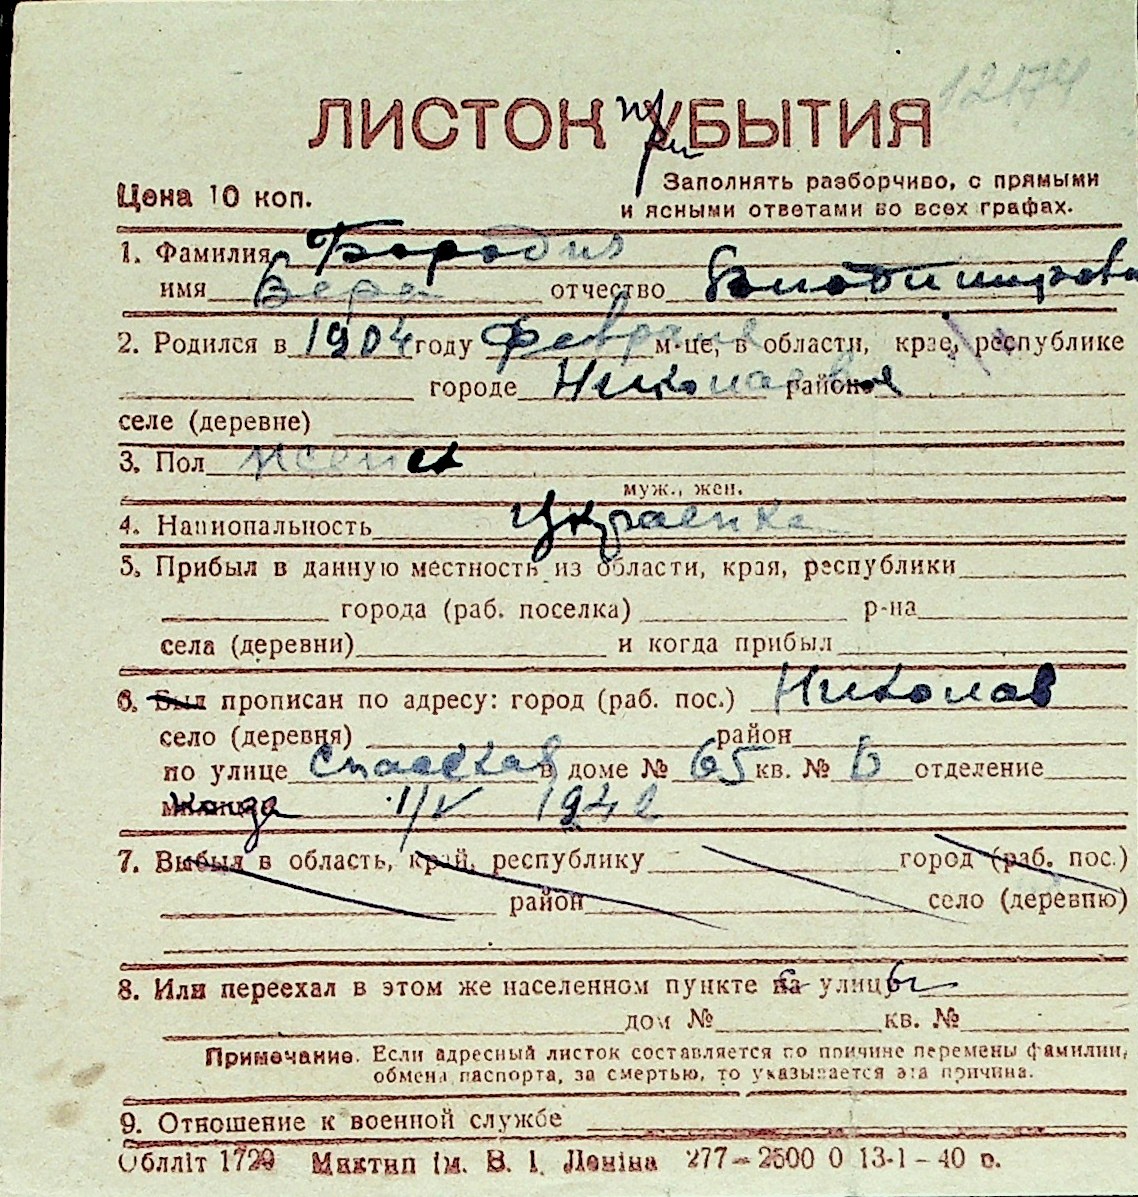 12174
ЛИСТОК при УБЫТИЯ
Цена 10 коп.
Заполнять разборчиво, с прямыми
и ясными ответами во всех графах.
1. Фамилия Бородин
имя Вера отчество Владимировна
2. Родился в 1904 году Феврале м-це, в области, крае, республике
городе Николаеве районе
селе (деревне)
3. Пол женск
муж., жен.
4. Национальность Украенка
5. Прибыл в данную местность из области, края, республики
города (раб. поселка) р-на
села (деревни) и когда прибыл
6. Был прописан по адресу: город (раб. пос.) Николаев
село (деревня) район
по улице Спасская в доме № 65 кв. № 6 отделение
когда 1/V 1942
7. Выбыл в область, край, республику город (раб. пос.)
район село (деревню)
8. Или переехал в этом же населенном пункте с улицы
дом № кв. №
Примечание. Если адресный листок составляется по причине перемены фамилии,
обмена паспорта, за смертью, то указывается эта причина.
9. Отношение к военной службе
Обллiт 1729 Миктип iм. В. I. Ленiна 277–2500 0 13-1–40 р.